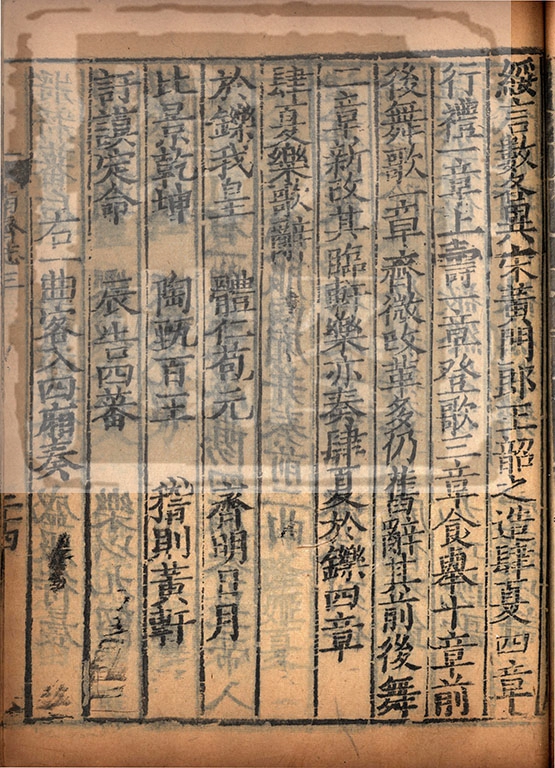 綏言數各異宋黃門郎王韶之造肆夏四章
行禮一章上壽一章登歌三章食舉十章前
後舞歌一章齊微改革多仍舊辭其前後舞
二章新改其臨軒樂亦奏肆夏於鑠四章
肆夏樂歌辭
於鑠我皇 體仁苞元 齊明日月
比景乾坤 陶甄百王 稽則黃軒
訏謨定命 辰告四蕃
右一曲客入四廂奏